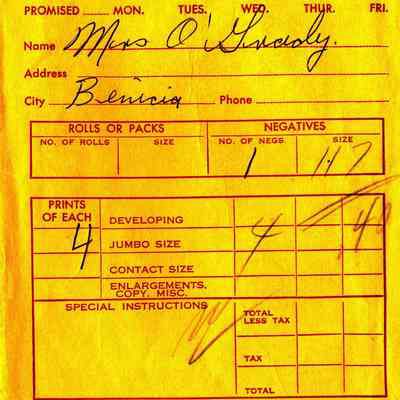 PROMISED MON. TUES. WED. THUR. FRI.
Name Mrs O'Grady.
Address
City Benicia Phone
ROLLS OR PACKS NEGATIVES
NO. OF ROLLS SIZE NO. OF NEGS. SIZE
1
PRINTS
OF EACH
DEVELOPING
4 JUMBO SIZE 4 .40
CONTACT SIZE
ENLARGEMENTS,
COPY, MISC.
SPECIAL INSTRUCTIONS
TOTAL
LESS TAX
TAX
TOTAL